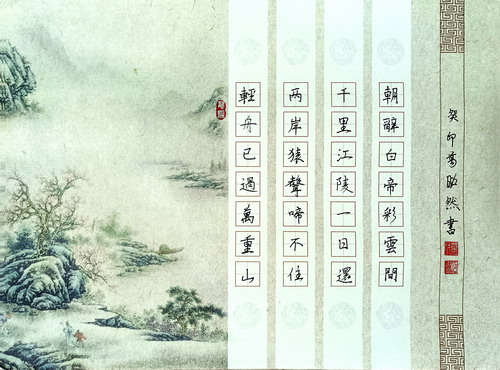 朝辭白帝彩雲間
千里江陵一日還
两岸猿聲啼不住
輕舟已過萬重山
癸卯然書